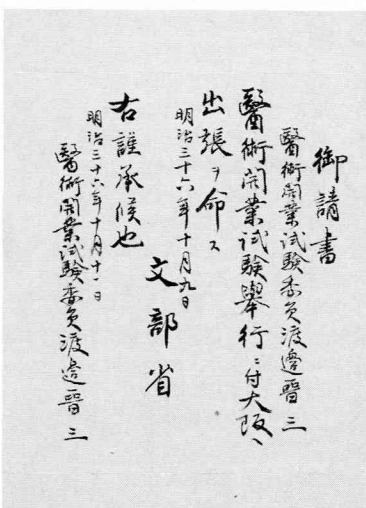 御請書
醫術開業試験委員渡邊晋三
醫術開業試験擧行ニ付大阪ヘ
出張ヲ命ス
明治三十六年十月九日
文部省
右謹承候也
明治三十六年十月十一日
醫術開業試験委員渡邊晋三